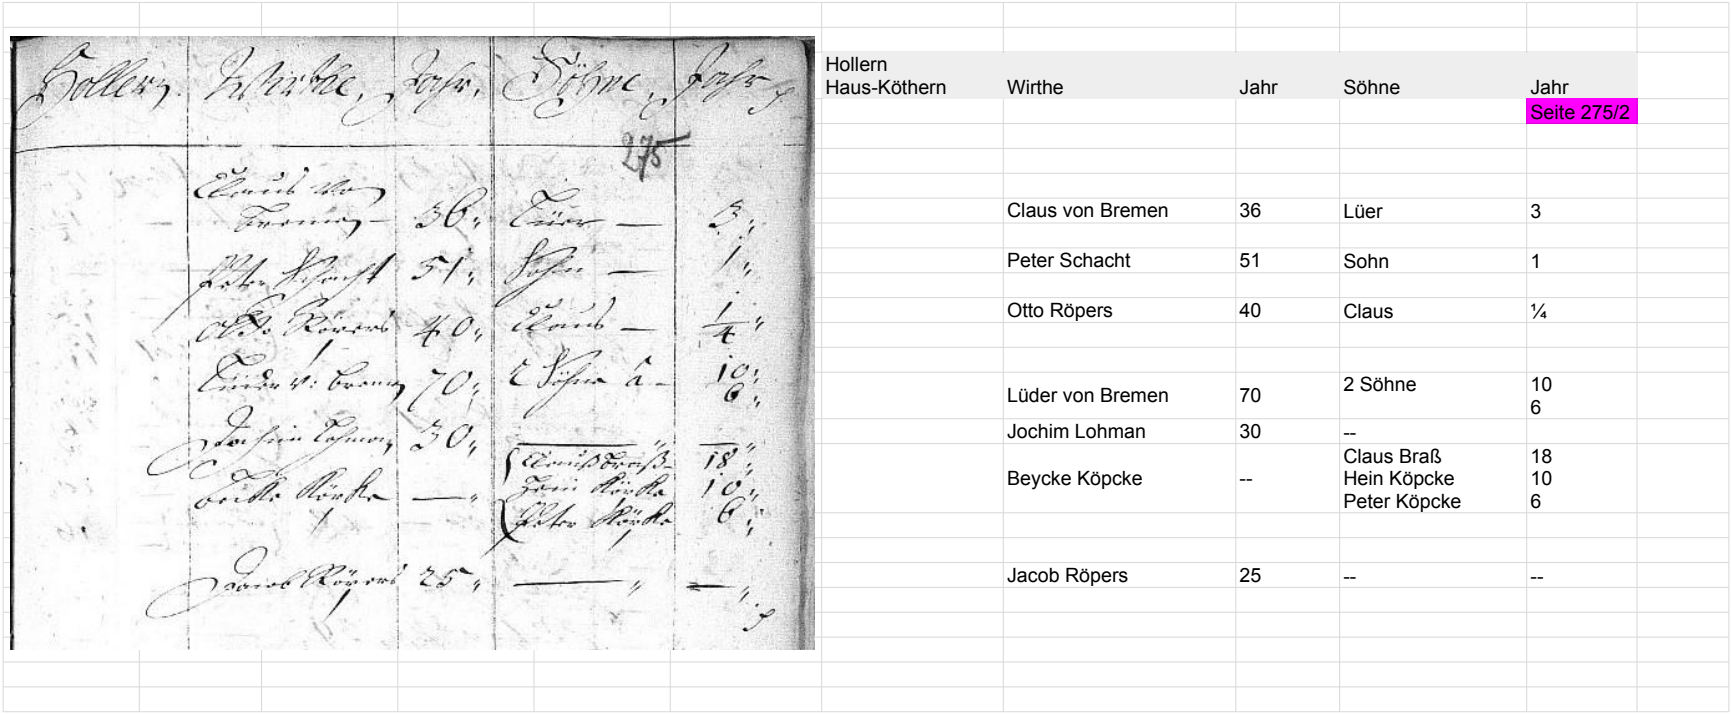 Hollern. Wirthe, Jahr, Söhne, Jahr
275
Claus von
Bremen 36 Lüer — 3
Peter Schacht 51 Sohn — 1
Otto Röpers 40 Claus — 1/4
Lüder v: Bremen 70 2 Söhne à — 10
6
Jochim Lohman 30 — —
Claus Braß 18
Beycke Köpcke — Hein Köpcke 10
Peter Köpcke 6
Jacob Röpers 25 — —
Hollern
Haus-Köthern Wirthe Jahr Söhne Jahr
Seite 275/2
Claus von Bremen 36 Lüer 3
Peter Schacht 51 Sohn 1
Otto Röpers 40 Claus ¼
2 Söhne 10
Lüder von Bremen 70
6
Jochim Lohman 30 --
Claus Braß 18
Beycke Köpcke -- Hein Köpcke 10
Peter Köpcke 6
Jacob Röpers 25 -- --